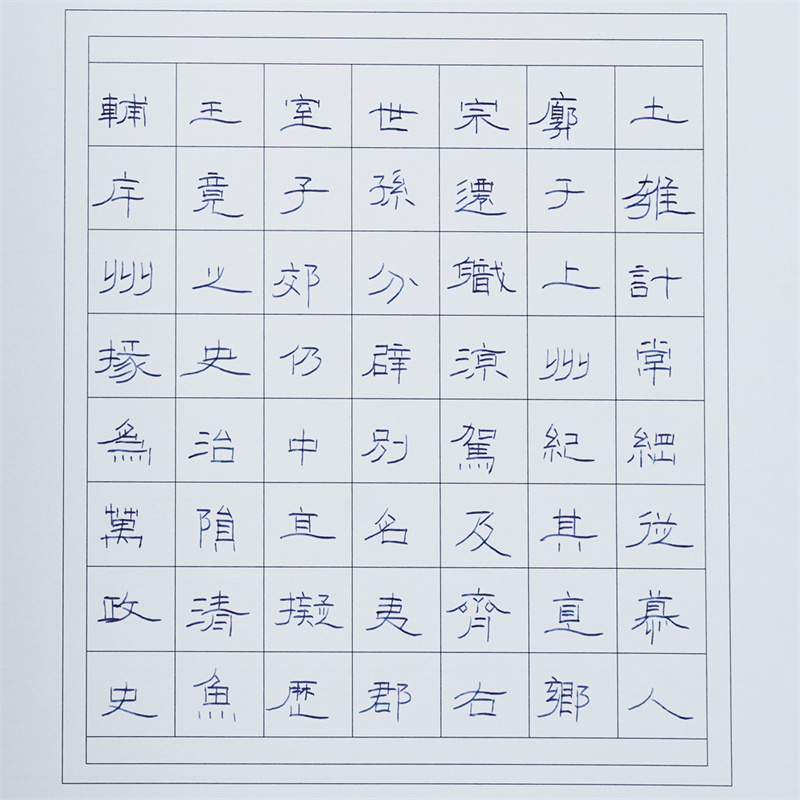 輔王室世宗廓土
斥竟子孫遷于雍
州之郊分職上計
掾史仍辟涼州常
為治中別駕紀綱
萬隕直名及其從
政清擬夷齊直慕
史魚歷郡右鄉人